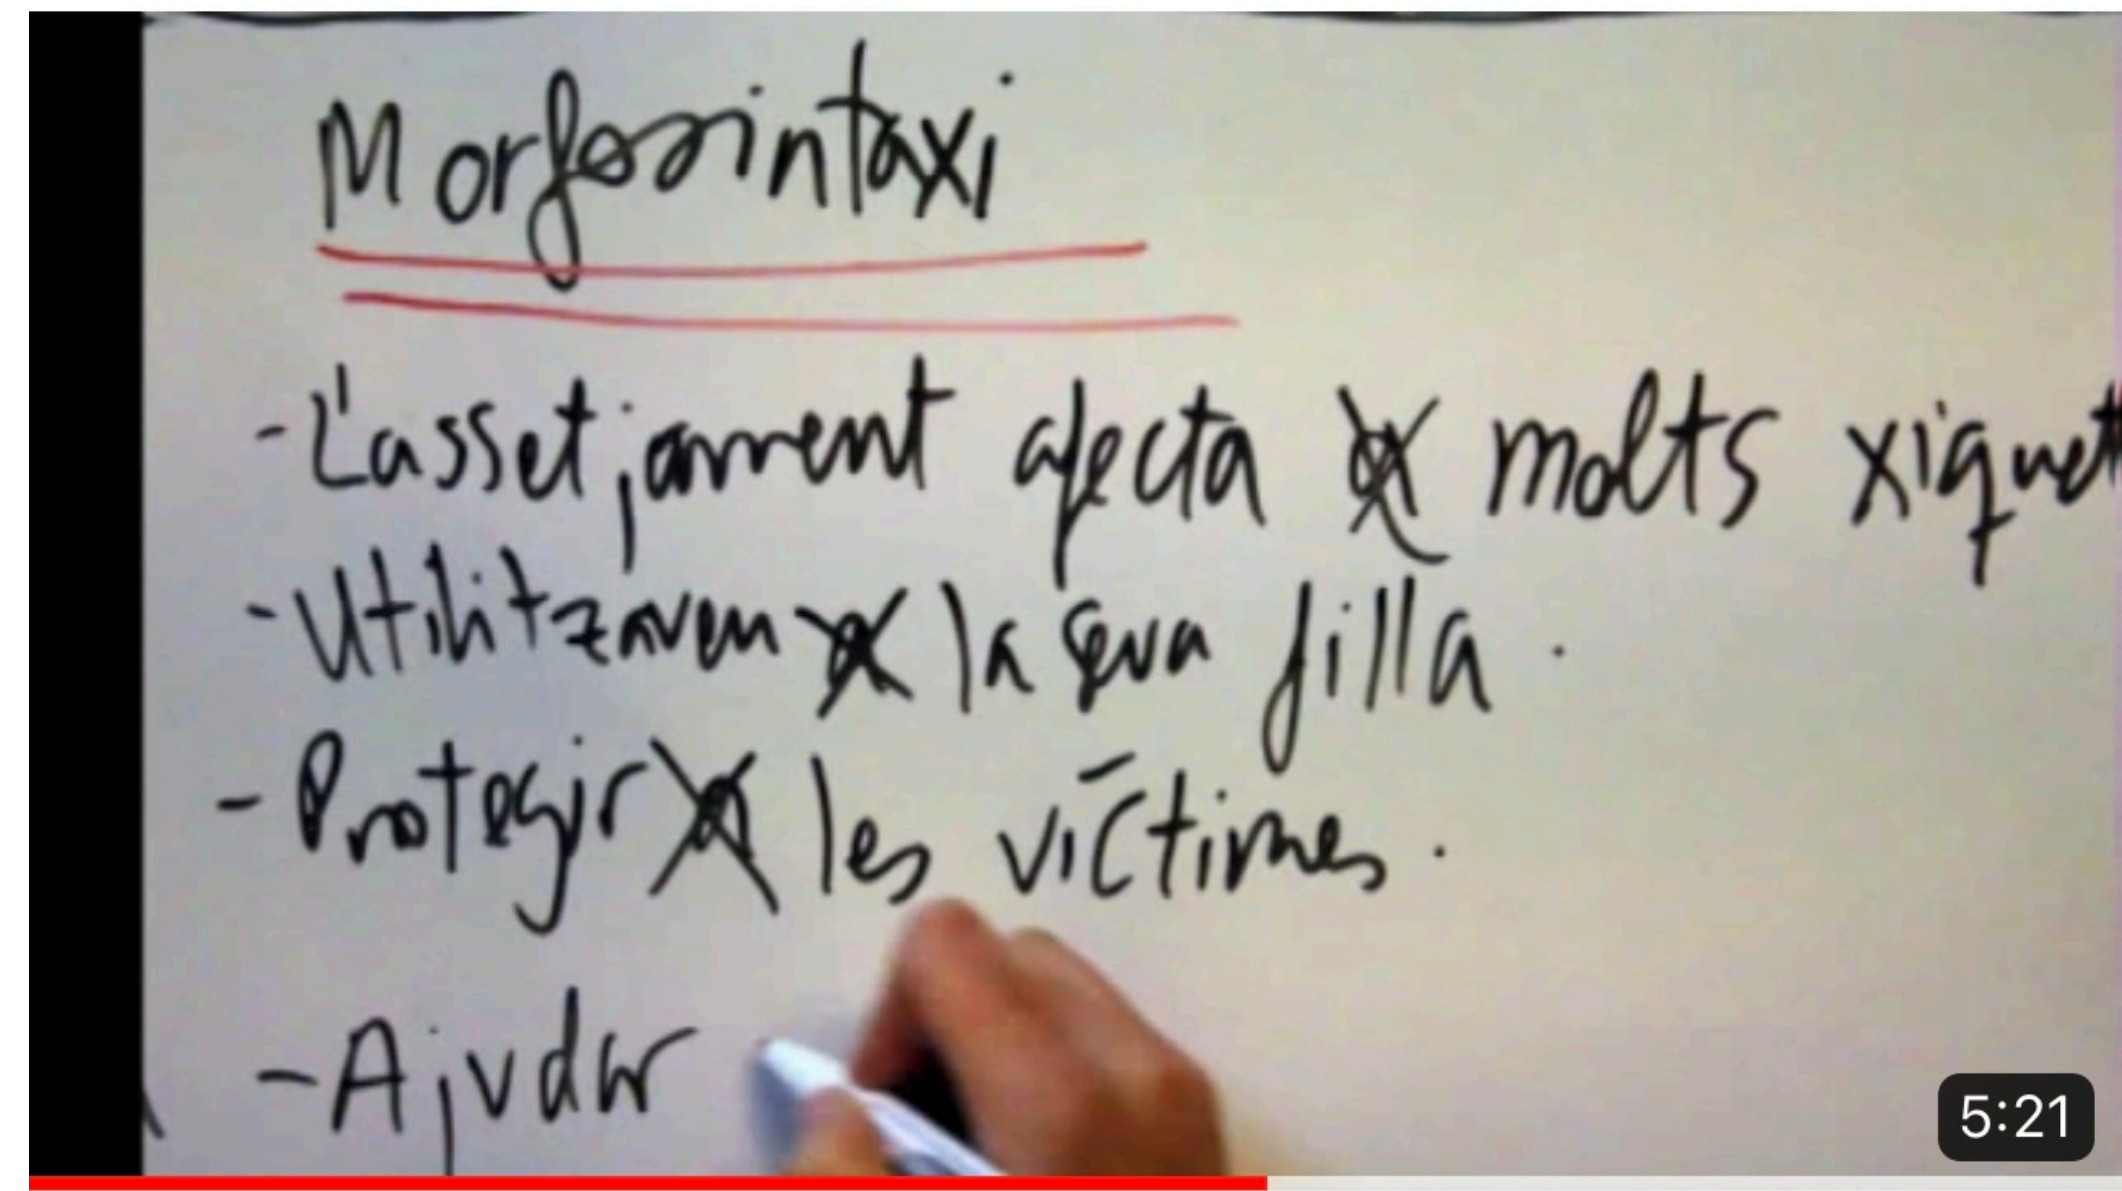 Morfosintaxi
- L'assetjament afecta a molts xiquet
- Utilitzaven a la seva filla.
- Protegir a les víctimes.
- Ajudar
5:21